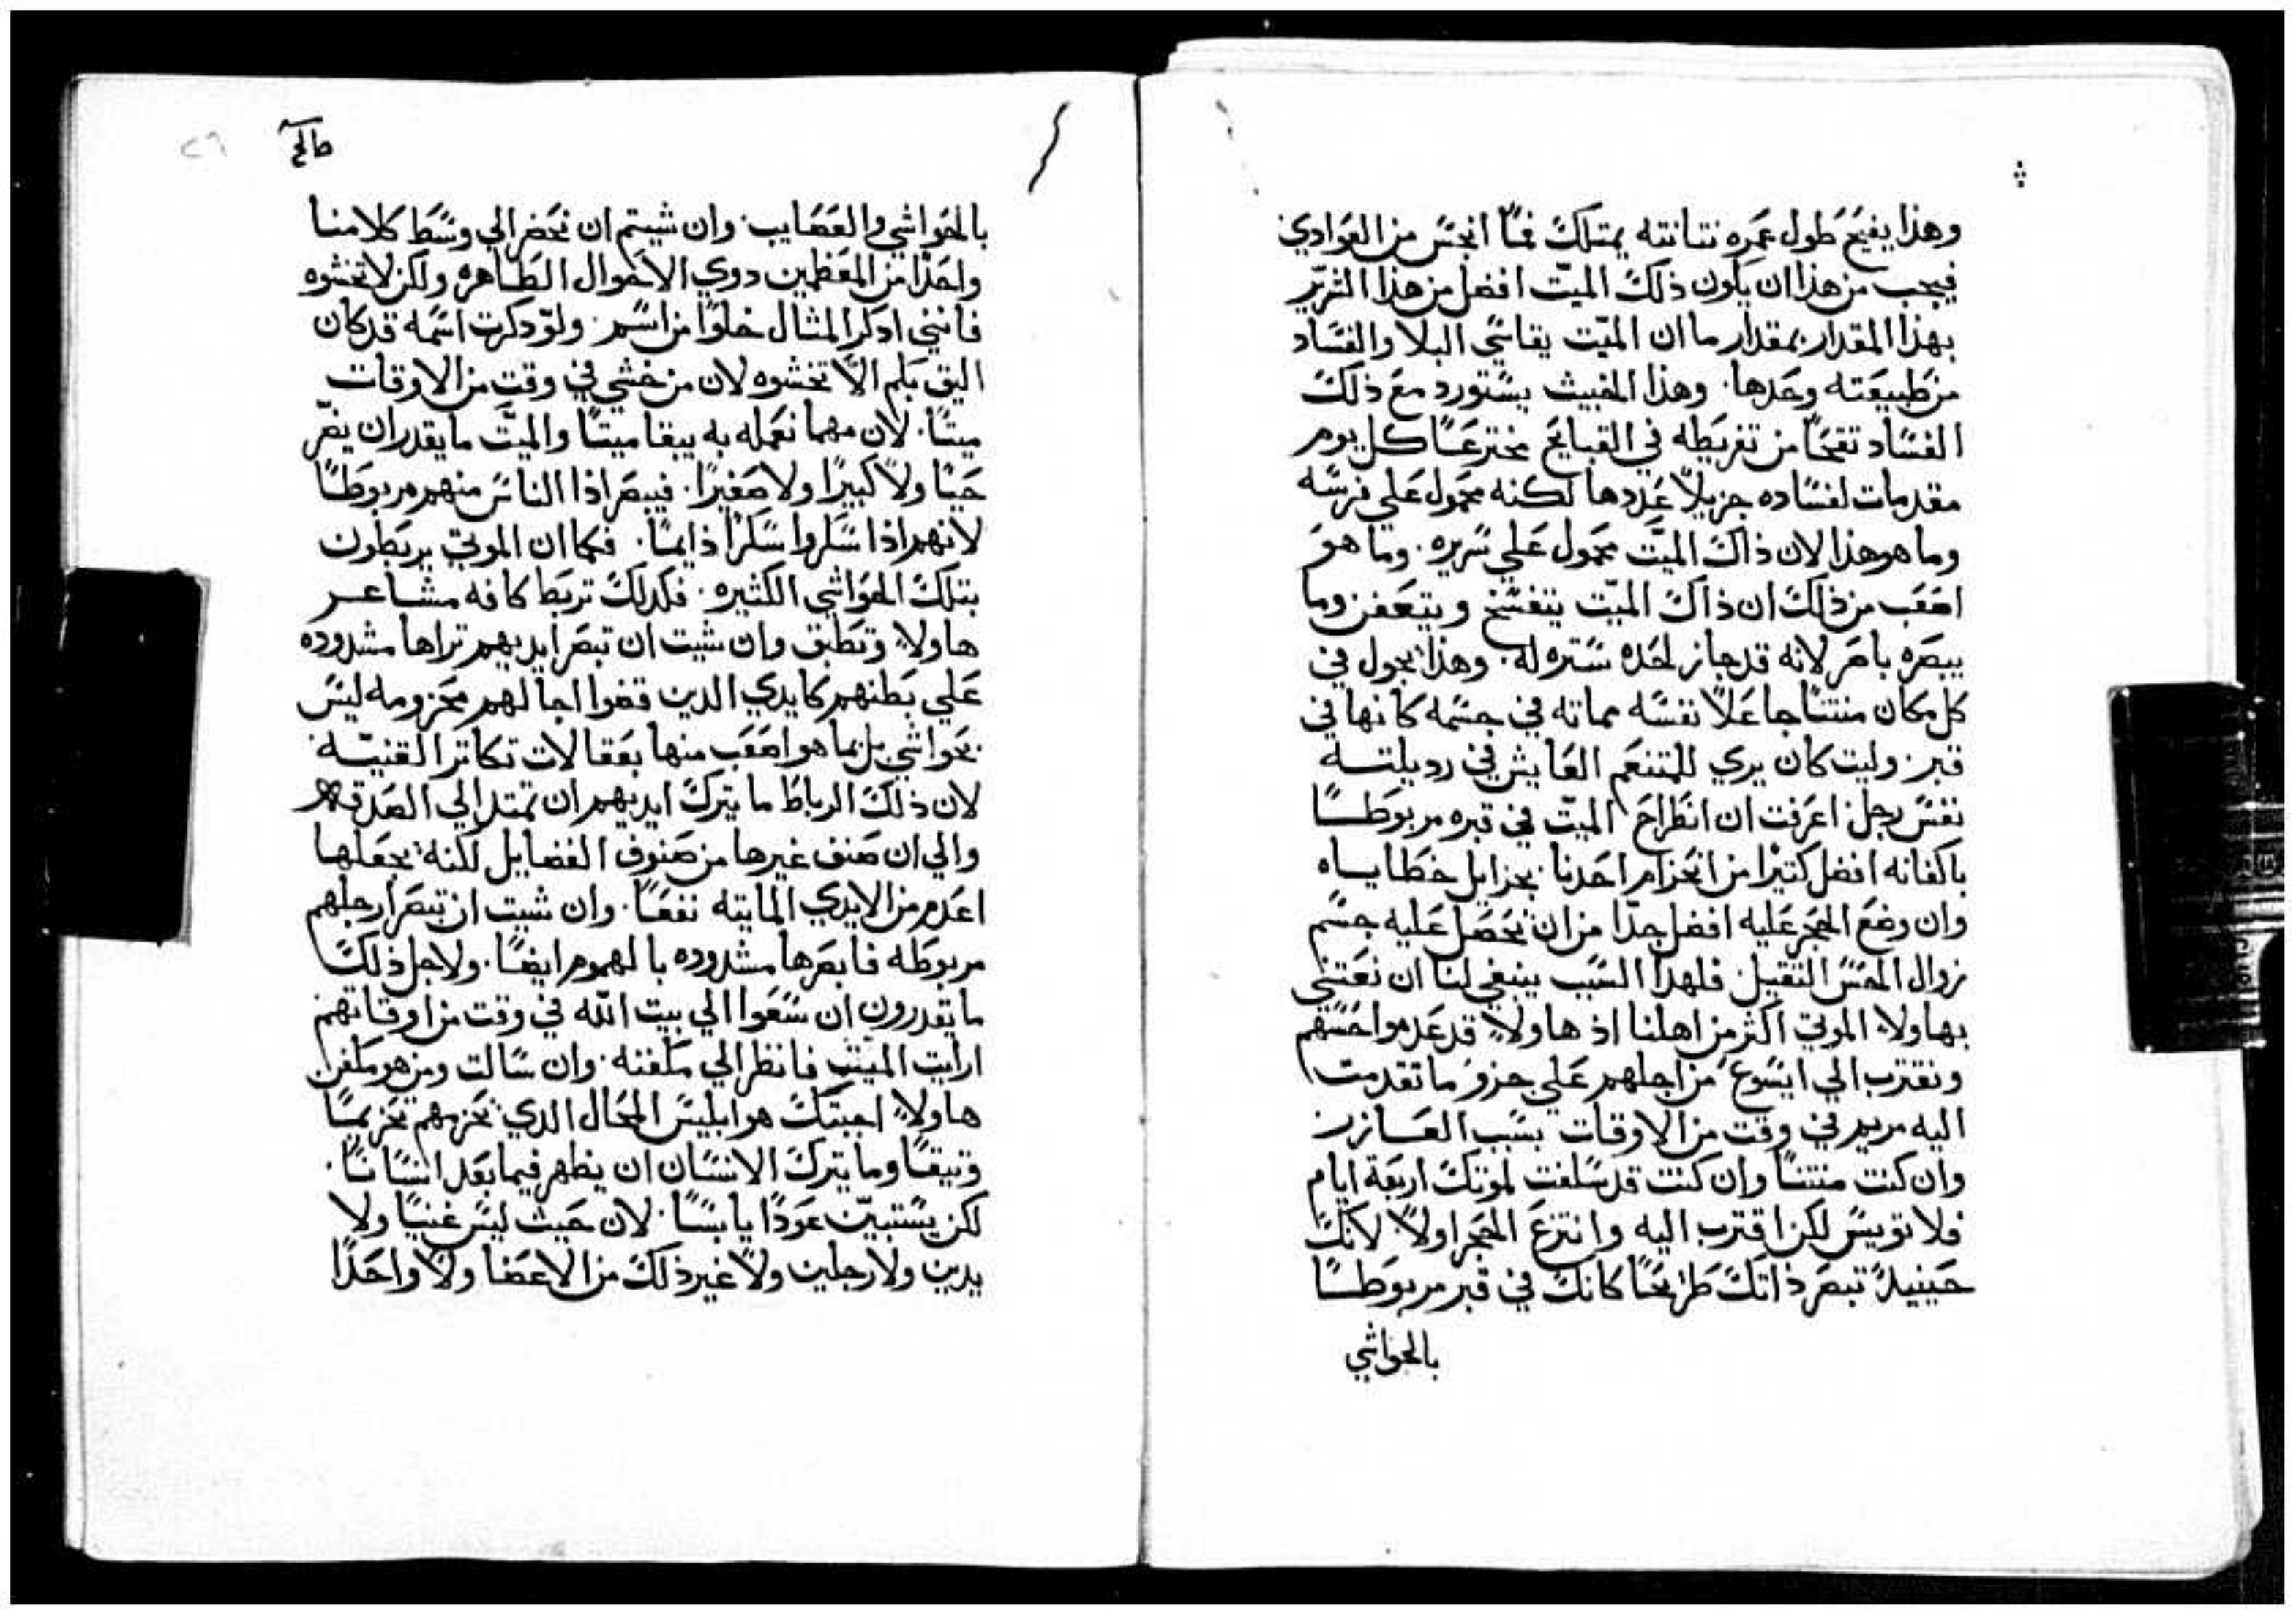 وهذا يفيح طول عمره نتانته يمتلك فمًا انجس من الغوادي
فيجب من هذا ان يكون ذلك الميّت افضل من هذا الشرير
بهذا المقدار بمقدار ما ان الميّت يقاسي البلا والفساد
من طبيعته وحدها. وهذا الخبيث يستورد مع ذلك
الفساد تقيحًا من تفريطه في القبايح مخترعًا كل يوم
مقدمات لفساده جزيلاً عددها لكنه محمول على فرسه
وما هو هذا لان ذاك الميّت محمول علي سريره. وما هو
اصعب من ذلك ان ذاك الميّت يتفسخ ويتعفن وما
يبصره باصر لانه قد حاز لحده ستره له. وهذا يجول في
كل مكان منتنًا جاعلاً نفسه مماته في جسمه كانها في
قبر. وليت كان يري للمتنعم العايش في رديلته
نفس رجل اعرفت ان انطراح الميّت في قبره مربوطًا
باكفانه افضل كتيرًا من انحزام احدنا بحزايل خطاياه
وان وضع الحجر عليه افضل جدّا من ان يحصل عليه جسم
زوال الحس التقيل. فلهدا السبب ينبغي لنا ان نعتني
بهاولاء الموتي اكثر من اهلنا اذ هاولاء قد عدموا حسهم
ونقترب الي ايسوع من اجلهم علي حزو ما تقدمت
اليه مريم في وقت من الاوقات بسبب العازر
وان كنت منتنًا وان كنت قد سلفت لموتك اربعة ايام
فلا تويس لكن اقترب اليه وانتزع الحجر اولاً لانك
حينيذ تبصر ذاتك طريحًا كانك في قبر مربوطًا
بالحواشي
بالحواشي والعصايب. وان شيتم ان نحضر الي وسط كلامنا
واحدًا من المعظمين دوي الاحوال الظاهره ولكن لا تخشوه
فانني ادكر المثال خلوًا من اسم. ولو دكرت اسمه قد كان
اليق بكم الاّ تخشوه لان من خشي في وقت من الاوقات
ميتًا. لان مهما نعمله به يبقا ميتًا والميّت ما يقدر ان يضر
حيًا ولا كبيرًا ولا صغيرًا. فيبصر اذا الناس منهم مربوطًا
لانهم اذا سكروا سكرًا دايمًا. فكما ان الموتي يربطون
بتلك الحواشي الكثيره. فكدلك تربط كافه مشاعر
هاولاء وتطبق وان شيت ان تبصر ايديهم تراها مشدوده
علي بطنهم كايدي الدين قضوا اجالهم محزومه ليس
بحواشي بل بما هو اصعب منها بعقالات تكاتر القنيّه
لان ذلك الرباط ما يترك ايديهم ان تمتد الي الصدقه
والي ان صنف غيرها من صنوف الفضايل لكنه يجعلها
اعدم من الايدي المايته نفعًا. وان شيت ان تبصر ارجلهم
مربوطه فابصرها مشدوده بالهموم ايضًا. ولاجل ذلك
ما يقدرون ان سعوا الي بيت الله في وقت من اوقاتهم
ارايت الميّت فانظر الي مكفنه. وان سالت ومن هو مكفن
هاولاء اجبتك هو ابليس المحال الدي يحزمهم تحزيمًا
وتيقًا وما يترك الانسان ان يظهر فيما بعد انسانًا.
لكن يستبيّن عودًا يابسًا. لان حيث ليس عينيًا ولا
يدين ولا رجلين ولا غير ذلك من الاعضا ولا واحدًا